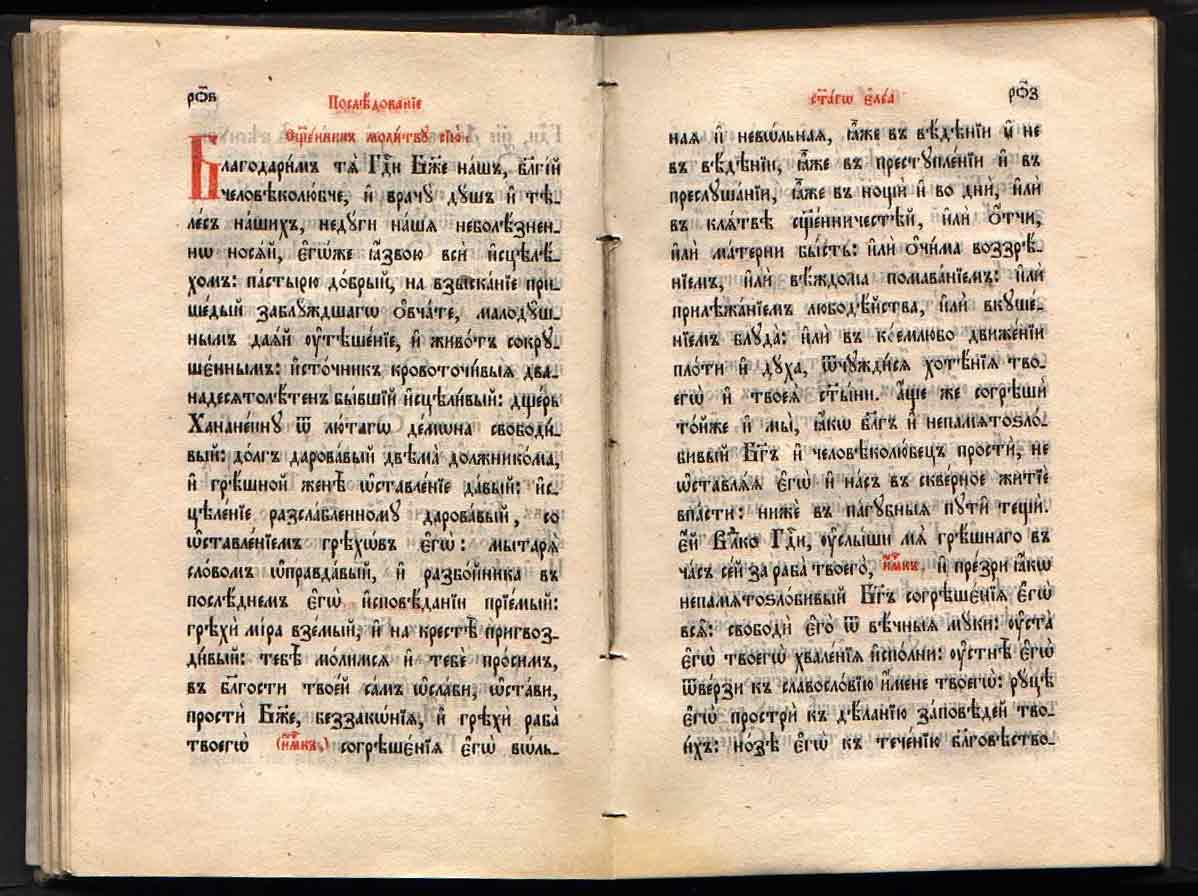 рѻ҃в
Послѣ́дованїе
Сщ҃е́нникъ моли́тву сїю̀:
Благодари́мъ тѧ̀ Гдⷭ҇и Бж҃е на́шъ, бл҃гі́й
человѣколю́бче, и҆ врачу̀ дꙋ́шъ и҆ тѣ-
ле́съ на́шихъ, недꙋ́ги на́шѧ неболѣ́знен-
нѡ носѧ́й, є҆гѡ́же ꙗ҆́звою всѝ и҆сцѣлѣ́-
хомъ: па́стырю до́брый, на взыска́нїе при-
ше́дый заблꙋ́ждшагѡ ѻ҆вча́те, малодꙋ́ш-
нымъ даѧ́й ᲂу҆тѣше́нїе, и҆ живо́тъ сокрꙋ-
ше́ннымъ: и҆сто́чникъ кровоточи́выѧ два-
надесѧтолѣ́тенъ бы́вшїй и҆сцѣли́вый: дще́рь
Ханане́инꙋ ѿ лю́тагѡ де́мѡна свободи́-
вый: до́лгъ дарова́вый двѣма̀ должнико́ма,
и҆ грѣ́шной женѣ̀ ѡ҆ставле́нїе да́вый: и҆с-
цѣле́нїе разсла́бленномꙋ дарова́вый, со
ѡ҆ставле́нїемъ грѣхѡ́въ є҆гѡ̀: мытарѧ̀
сло́вомъ ѡ҆правда́вый, и҆ разбо́йника въ
послѣ́днемъ є҆гѡ̀ и҆сповѣ́данїи прїе́мый:
грѣхѝ мі́ра взе́мый, и҆ на крестѣ̀ пригвоз-
ди́вый: тебѣ̀ мо́лимсѧ и҆ тебѐ про́симъ,
въ бл҃гости твое́й са́мъ ѡ҆сла́би, ѡ҆ста́ви,
простѝ Бж҃е, беззакѡ́нїѧ, и҆ грѣхѝ раба̀
твоегѡ̀ (и҆́мк҃ъ,) согрѣшє́нїѧ є҆гѡ̀ вѡ́ль-
рѻ҃з
ст҃а́гѡ є҆ле́а
наѧ и҆ невѡ́льнаѧ, ꙗ҆̀же въ вѣ́дѣнїи и҆ не
въ вѣ́дѣнїи, ꙗ҆̀же въ преступле́нїи и҆ въ
преслꙋша́нїи, ꙗ҆̀же въ нощѝ и҆ во днѝ, и҆лѝ
въ клѧ́твѣ сщ҃е́нничестѣй, и҆лѝ ѻ҆́тчи,
и҆лѝ ма́терни бы́сть: и҆лѝ ѻ҆чи́ма воззрѣ́-
нїемъ, и҆лѝ вѣ́ждома помава́нїемъ: и҆лѝ
прилѣжа́нїемъ любодѣ́йства, и҆лѝ вкꙋше́-
нїемъ блꙋда̀: и҆лѝ въ ко́емлюбо движе́нїи
пло́ти и҆ дꙋ́ха, ѿчꙋжди́сѧ хотѣ́нїѧ тво-
егѡ̀ и҆ твоеѧ̀ ст҃ы́ни. А҆́ще же согрѣшѝ
то́йже и҆ мы̀, ꙗ҆́кѡ бл҃гъ и҆ непамѧтоѕло́-
бивый Бг҃ъ и҆ человѣколю́бецъ простѝ, не
ѡ҆ставлѧ́ѧ є҆гѡ̀ и҆ на́съ въ скве́рное житїѐ
впа́сти: нижѐ въ па́гꙋбныѧ пꙋтѝ тещѝ.
Є҆́й Влⷣко Гдⷭ҇и, ᲂу҆слы́ши мѧ̀ грѣ́шнаго въ
ча́съ се́й за раба̀ твоего̀, и҆́мк҃ъ, и҆ пре́зри ꙗ҆́кѡ
непамѧтоѕло́бивый Бг҃ъ согрѣшє́нїѧ є҆гѡ̀
всѧ̑: свободѝ є҆го̀ ѿ вѣ́чныѧ мꙋ́ки: ᲂу҆ста̀
є҆гѡ̀ твоегѡ̀ хвале́нїѧ и҆спо́лни: ᲂу҆стнѣ̀ є҆гѡ̀
ѿве́рзи къ славосло́вїю и҆́мене твоегѡ̀: рꙋ́цѣ
є҆гѡ̀ прострѝ къ дѣ́ланїю за́повѣдей тво-
и́хъ: но́зѣ є҆гѡ̀ къ тече́нїю бл҃говѣ́ство-